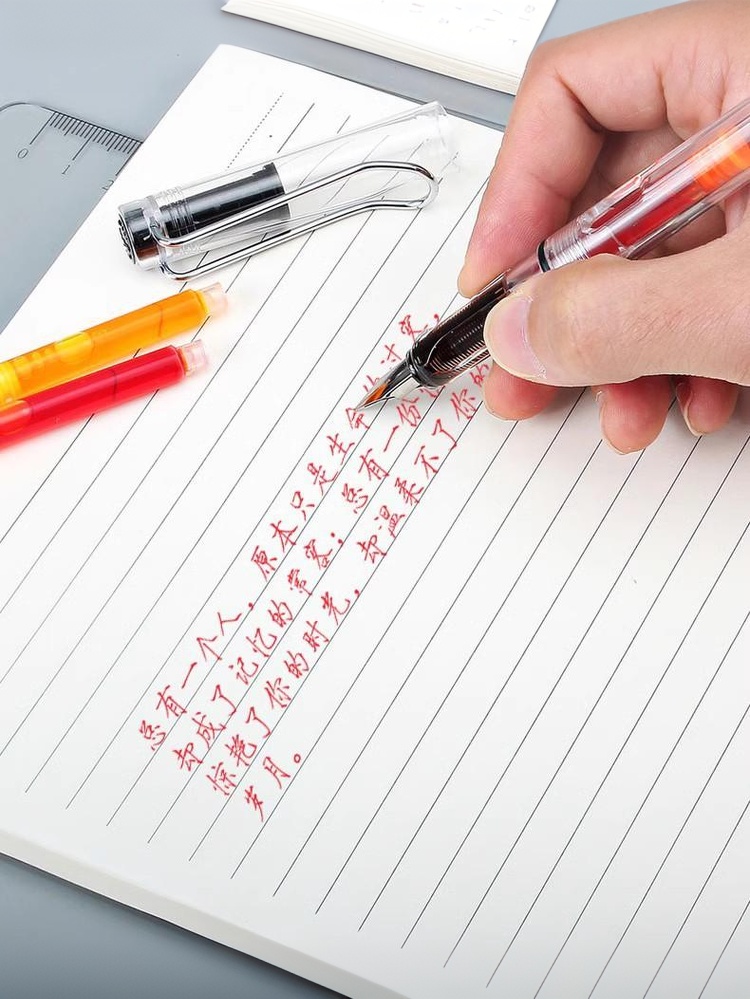 总有一个人，原本只是生命的过客，
却成了记忆的常客；总有一份
惊艳了你的时光，却温柔不了你的
岁月。
0 1